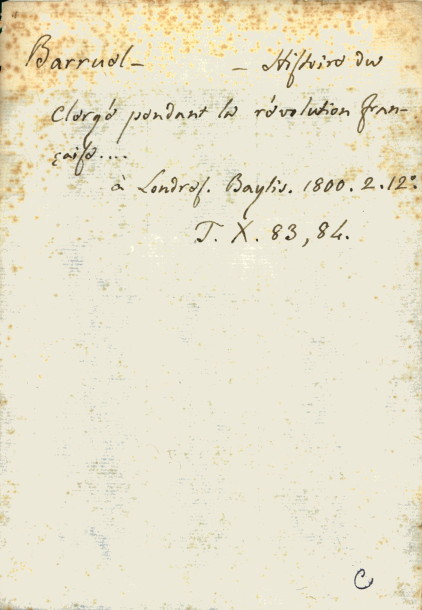 Barruel – – Histoire du
Clergé pendant la révolution fran-
çaise....
à Londres. Baylis. 1800. 2. 12°.
T. X. 83, 84.
C